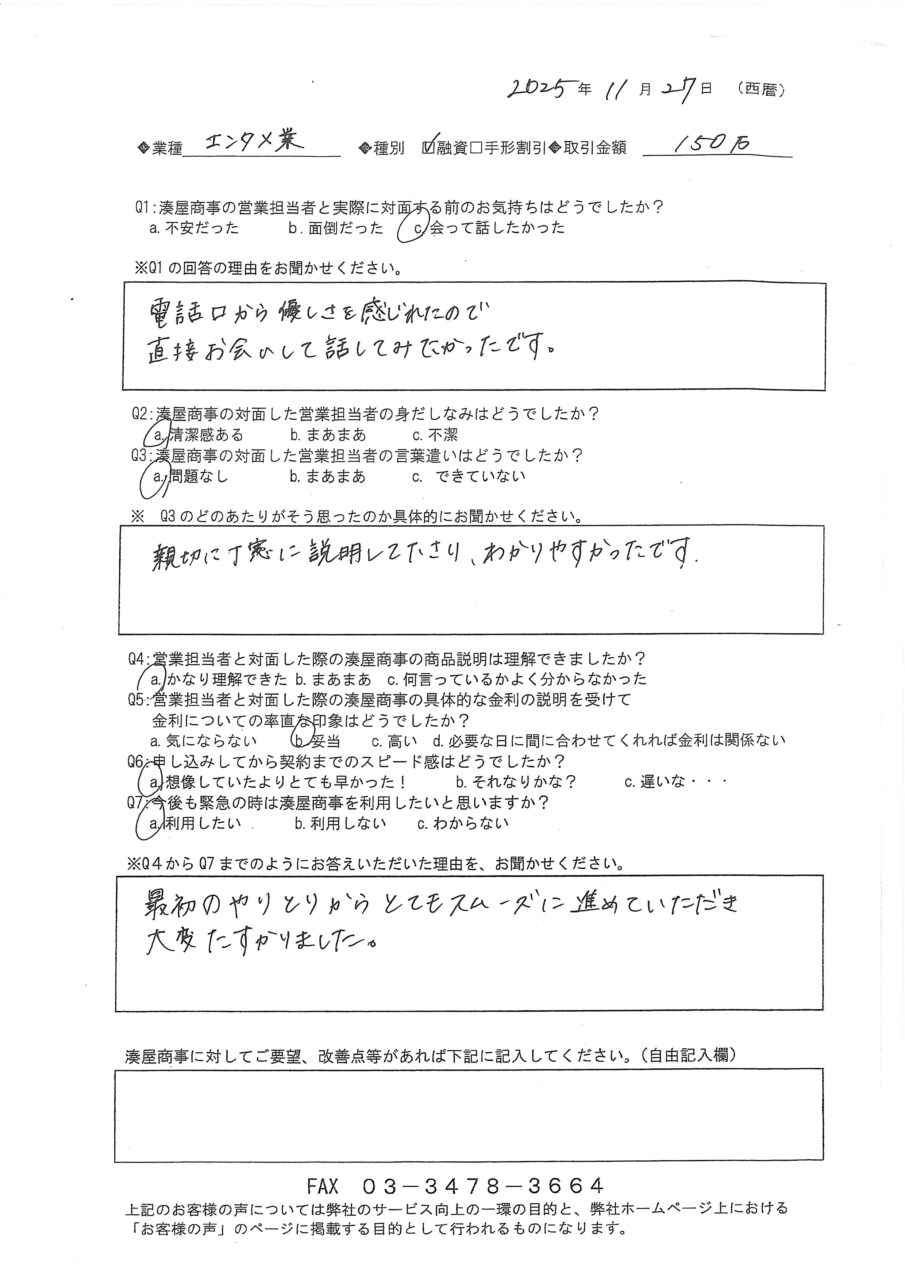 2025年 11月27日 (西暦)
◆業種 エンタメ業 ◆種別 ☑融資□手形割引◆取引金額 150万
Q1:湊屋商事の営業担当者と実際に対面する前のお気持ちはどうでしたか?
a.不安だった b.面倒だった c.会って話したかった
※Q1の回答の理由をお聞かせください。
電話口から優しさを感じれたので
直接お会いして話してみたかったです。
Q2:湊屋商事の対面した営業担当者の身だしなみはどうでしたか?
a.清潔感ある b.まあまあ c.不潔
Q3:湊屋商事の対面した営業担当者の言葉遣いはどうでしたか?
a.問題なし b.まあまあ c. できていない
※ Q3のどのあたりがそう思ったのか具体的にお聞かせください。
親切に丁寧に説明してださり、わかりやすかったです.
Q4:営業担当者と対面した際の湊屋商事の商品説明は理解できましたか?
a.かなり理解できた b.まあまあ c.何言っているかよく分からなかった
Q5:営業担当者と対面した際の湊屋商事の具体的な金利の説明を受けて
金利についての率直な印象はどうでしたか?
a.気にならない b.妥当 c.高い d.必要な日に間に合わせてくれれば金利は関係ない
Q6:申し込みしてから契約までのスピード感はどうでしたか?
a.想像していたよりとても早かった! b.それなりかな? c.遅いな・・・
Q7:今後も緊急の時は湊屋商事を利用したいと思いますか?
a.利用したい b.利用しない c.わからない
※Q4からQ7までのようにお答えいただいた理由を、お聞かせください。
最初のやりとりからとてもスムーズに進めていただき
大変たすかりました。
湊屋商事に対してご要望、改善点等があれば下記に記入してください。(自由記入欄)
FAX 03-3478-3664
上記のお客様の声については弊社のサービス向上の一環の目的と、弊社ホームページ上における
「お客様の声」のページに掲載する目的として行われるものになります。